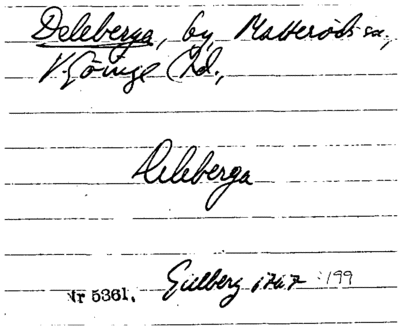 Deleberga, by, Matteröds sn,
V. Göinge hd.,
Deleberga
Nr 5361. Gillberg 1767 :199